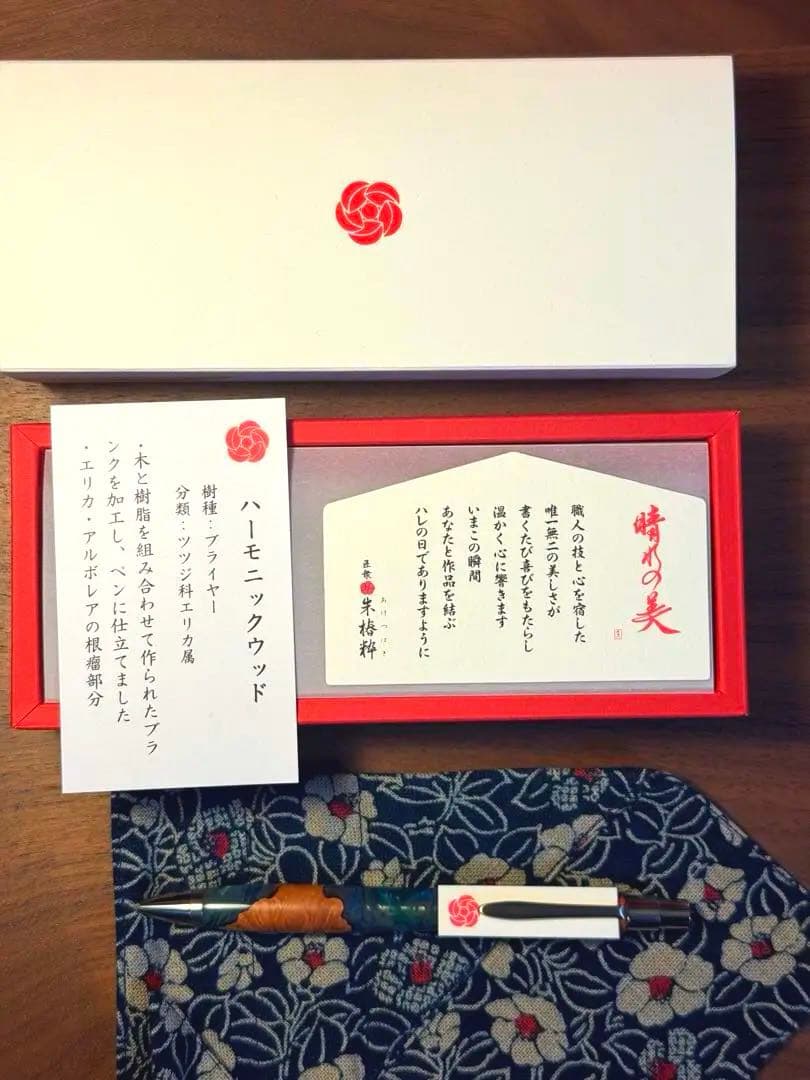 晴れの美
職人の技と心を宿した
唯一無二の美しさが
書くたび喜びをもたらし
温かく心に響きます
いまこの瞬間
あなたと作品を結ぶ
ハレの日でありますように
あけつばき
朱椿粋
ハーモニックウッド
樹種：ブライヤー
分類：ツツジ科エリカ属
・木と樹脂を組み合わせて作られたブラ
ンクを加工し、ペンに仕立てました
・エリカ・アルボレアの根瘤部分